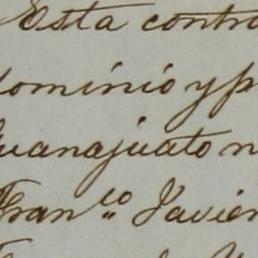 Esta contra
dominio y p
Guanajuato n
Fran.co Javier